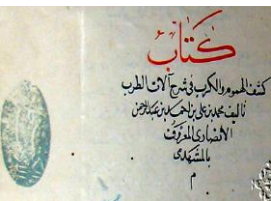 كتاب
كشف الهموم والكرب فى شرح آلات الطرب
تأليف محمد بن على بن احمد بن عبد الرحمن
الانصارى المعروف
بالمشهدى
م